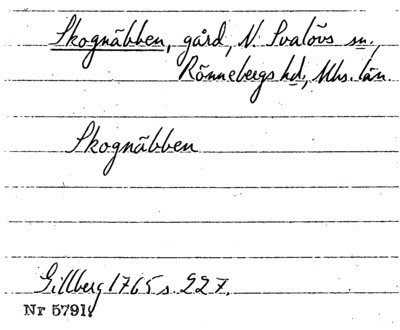 Skognäbben, gård, N. Svalövs sn.,
Rönnebergs hd., Mhs. län.
Skognäbben
Gillberg 1765 s. 227.
Nr 5791.